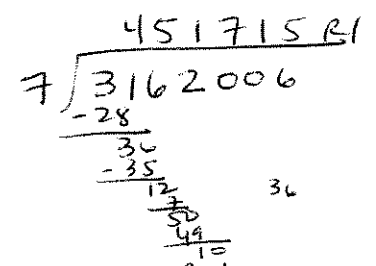 451715 R1
7 3162006
-28
36
-35
12
7
50
49
10
36